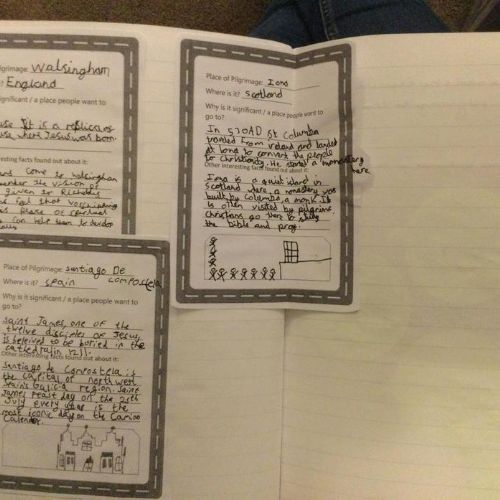 grimage: Walsingham
? England
significant / a place people want to
use It is a replica of
use where Jesus was born.
resting facts found out about it:
come to Walsingham
the vision of
Place of Pilgrimage: Santiago De
Compostela
Where is it? Spain
Why is it significant / a place people want to
go to?
Saint James, one of the
twelve disciples of Jesus,
is beleived to be buried in the
cathedral in 1211.
Other interesting facts found out about it:
Santiago de Compostela is
the capital of northwest
Spains Galicia region. Saint
James feast day on the 25th
July every year is the
most iconic day on the Camino
Calender.
Place of Pilgrimage: Iona
Where is it? Scotland
Why is it significant / a place people want to
go to?
In 570AD St Columba
traveled from ireland and landed
at Iona to convert the people
to Christianity. He started a monastery
here
Other interesting facts found out about it:
Iona is a quiet island in
Scotland where a monastery was
built by Columba, a monk. It
is often visited by pilgrims,
Christians go there to study
the bible and pray.